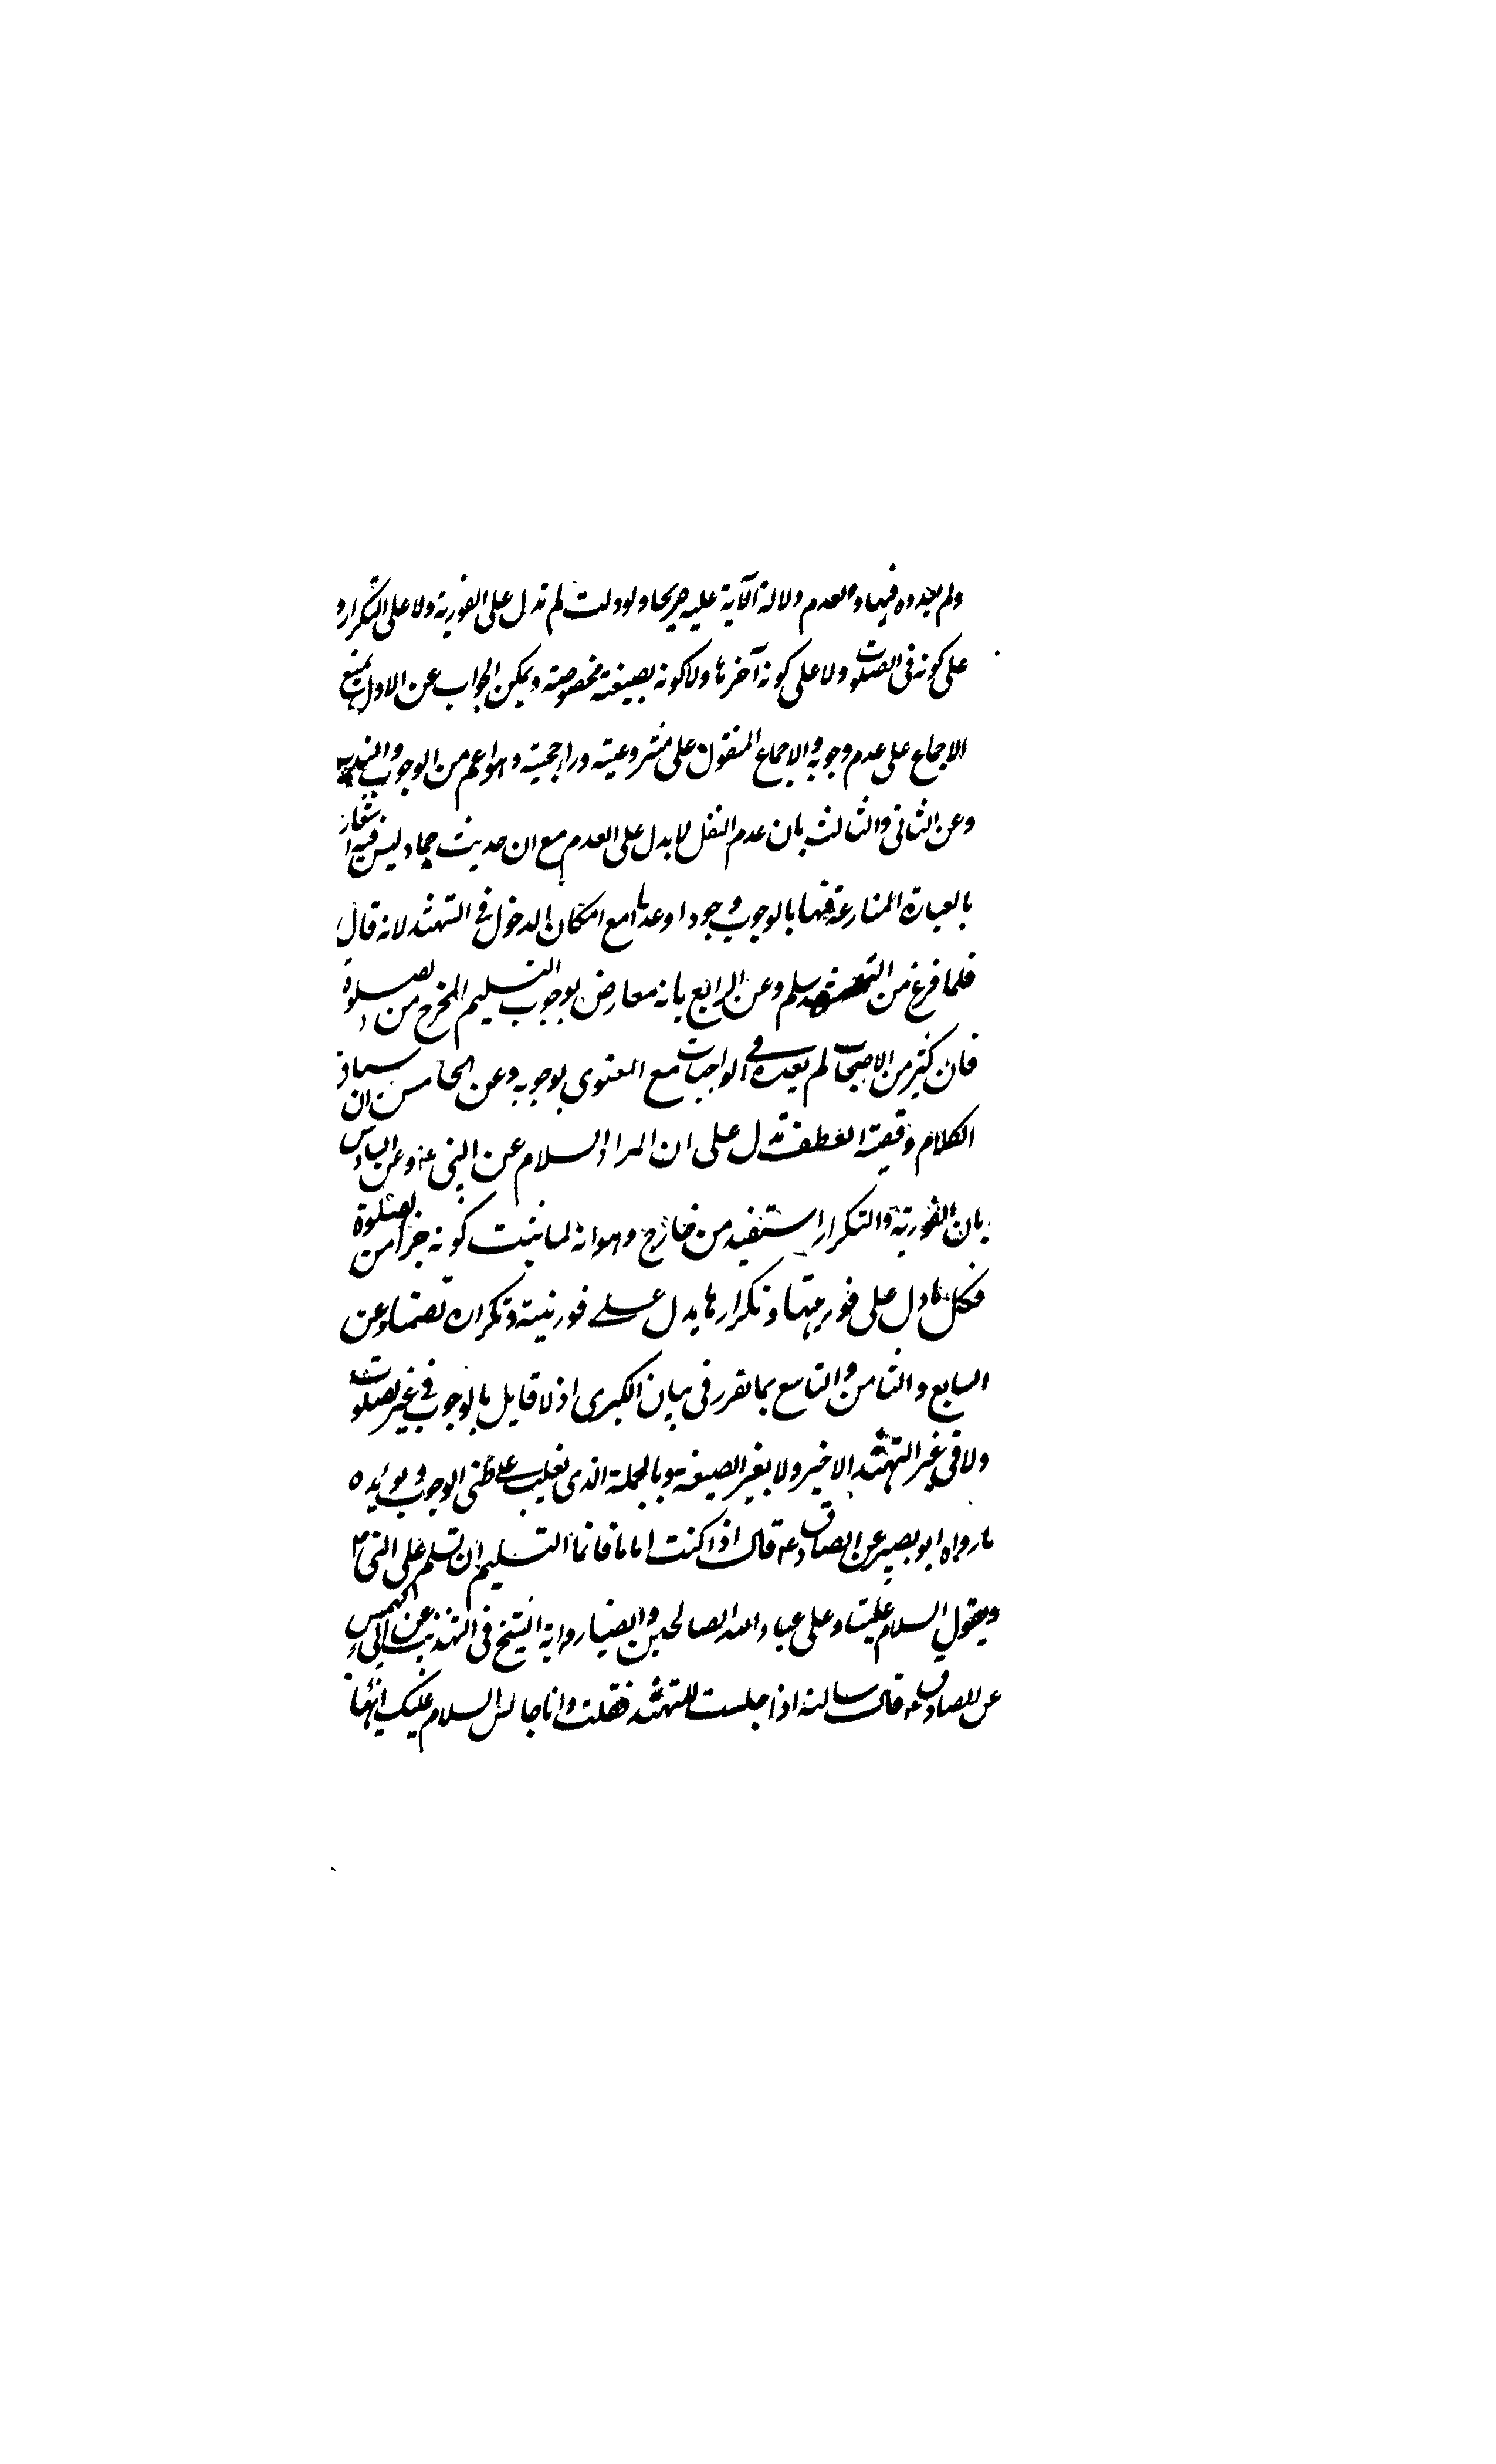 ولم يعدوه فيها ولعدم دلالة الآية عليه صريحا ولو دلت لم تدل على الفورية ولا على التكرار و
على كونه فى الصلوت ولا على كونه آخرها ولا كونه بصيغة مخصوصة ويمكن الجواب عن الاول بمنع
الاجماع على عدم وجوبه والاجماع المنقول على مشروعيته وراجحيته وهو اعم من الوجوب والندب
وعن الثانى والثالث بان عدم النقل لا يدل على العدم مع ان حديث حماد ليس فيه اشعار
بالعبارة المنازعة فيها بالوجوب وجودا وعدما مع امكان الدخول فى التشهد لانه قال
فلما فرغ من التشهد سلم وعن الرابع بانه معارض بوجوب التسليم المخرج من الصلوة
فان كثير من الاصحاب لم يعده فى الواجبات مع الفتوى بوجوبه وعن الخامس ان سياق
الكلام وقضية العطف تدل على ان المراد السلام عن النبى ع وعن السادس
بان الفورية والتكرار استفيد من خارج وهو انه لما ثبت كونه جزأ من الصلوة
فكل ما دل على فوريتها وتكرارها يدل على فوريته وتكراره تضمنا وعن
السابع والثامن والتاسع بما تقرر فى بيان الكبرى اذ لا قايل بالوجوب فى غير الصلوت
ولا فى غير التشهد الاخير ولا بغير الصيغة وبالجملة الذى يغلب على ظنى الوجوب ويؤيده
ما رواه ابو بصير عن الصادق ع قال اذا كنت اماما فانما التسليم ان تسلم على النبى
ويقول السلام علينا وعلى عباد الله الصالحين وايضا رواية الشيخ فى التهذيب عن ابى كهمس
عن الصادق ع قال سالته اذا جلست للتشهد فقلت وانا جالس السلام عليك ايها